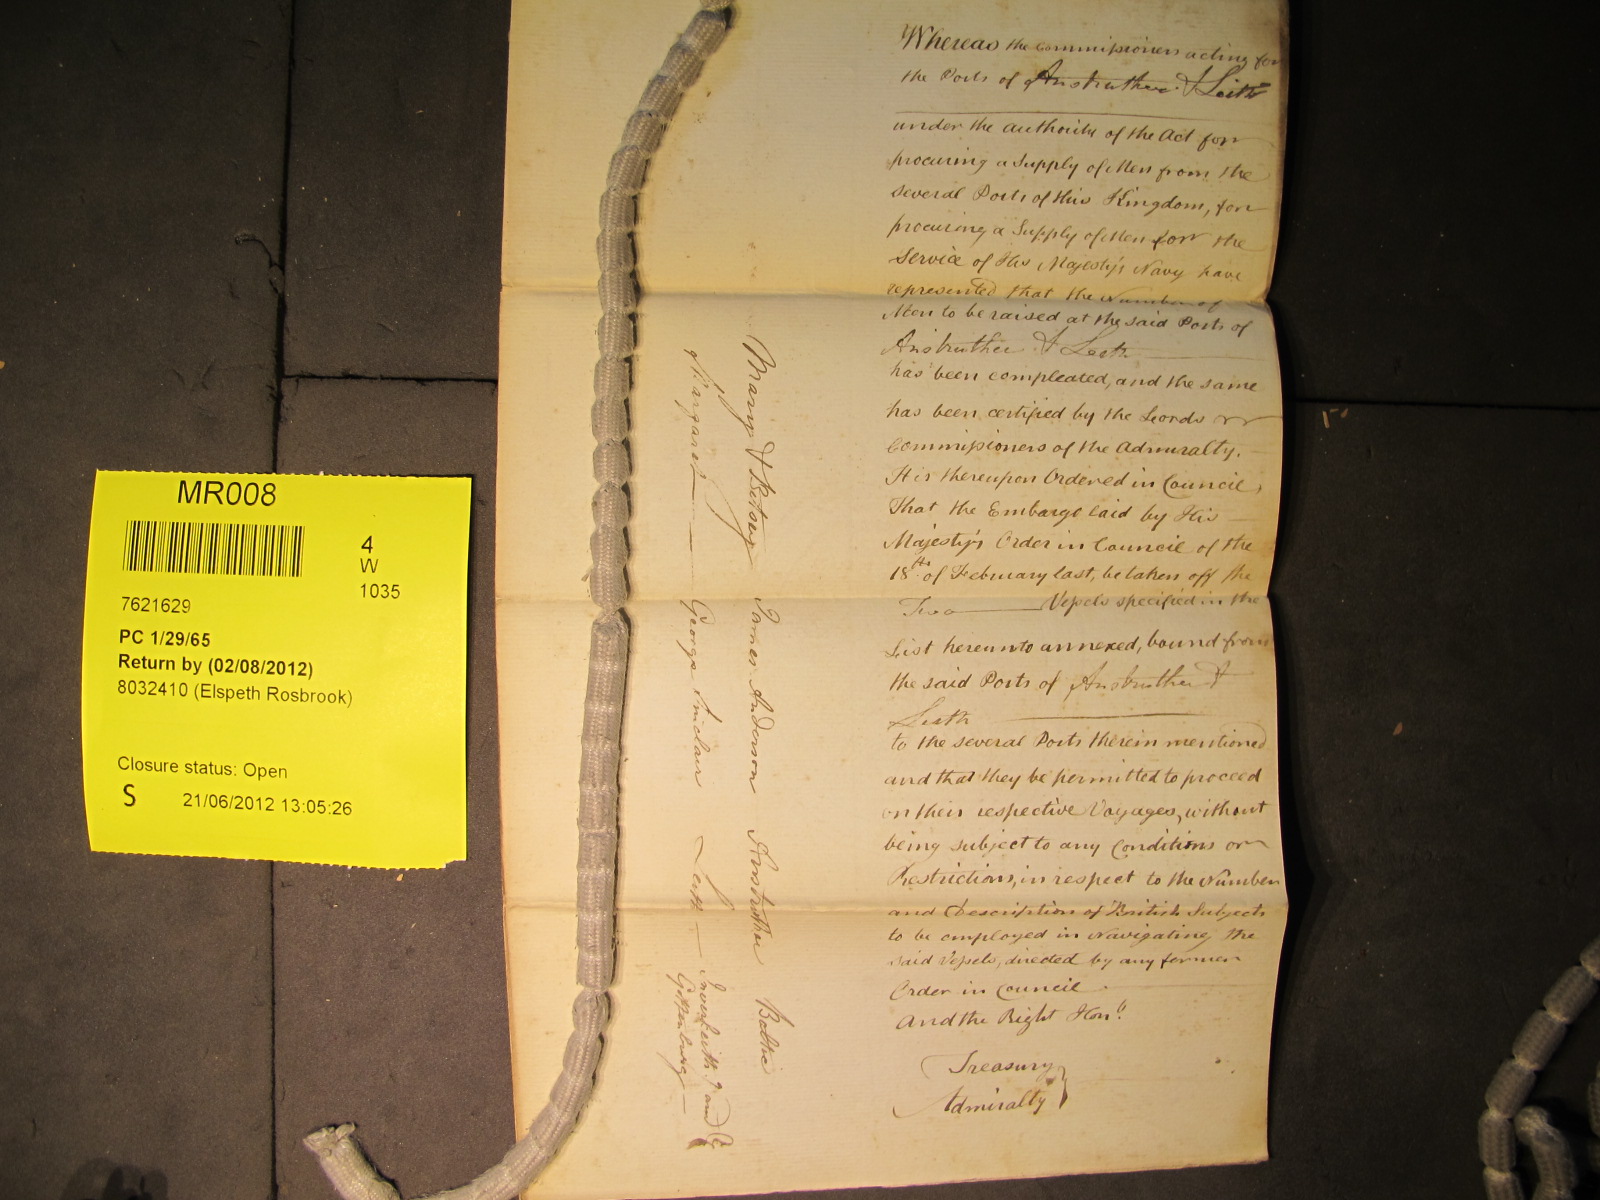 MR008
4
W
1035
7621629
PC 1/29/65
Return by (02/08/2012)
8032410 (Elspeth Rosbrook)
Closure status: Open
S 21/06/2012 13:05:26
Whereas the Commissioners acting for
the Ports of Anstruther & Leith
under the authority of the Act for
procuring a Supply of Men from the
several Ports of this Kingdom, for
procuring a Supply of Men for the
Service of His Majesty's Navy have
represented that the Number of
Men to be raised at the said Ports of
Anstruther & Leith
has been compleated, and the same
has been certified by the Lords
Commissioners of the Admiralty.
It is thereupon Ordered in Council,
That the Embargo laid by His
Majesty's Order in Council of the
18th of February last, be taken off the
Two Vessels specified in the
List hereunto annexed, bound from
the said Ports of Anstruther &
Leith
to the several Ports therein mentioned
and that they be permitted to proceed
on their respective Voyages, without
being subject to any Conditions or
Restrictions, in respect to the Number
and Description of British Subjects
to be employed in Navigating the
said Vessels, directed by any former
Order in Council.
And the Right Hon.
Treasury
Admiralty
Mary & Betsey James Anderson Anstruther Baltic
Margaret George Sinclair Leith Inverkeithg. and
Gottenburg